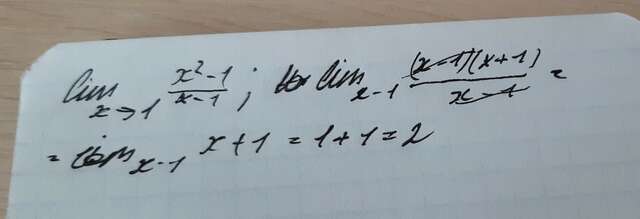 lim x→1 x²-1/x-1 ; lim x-1 (x-1)(x+1)/x-1 =
= lim x-1 x+1 = 1+1 = 2